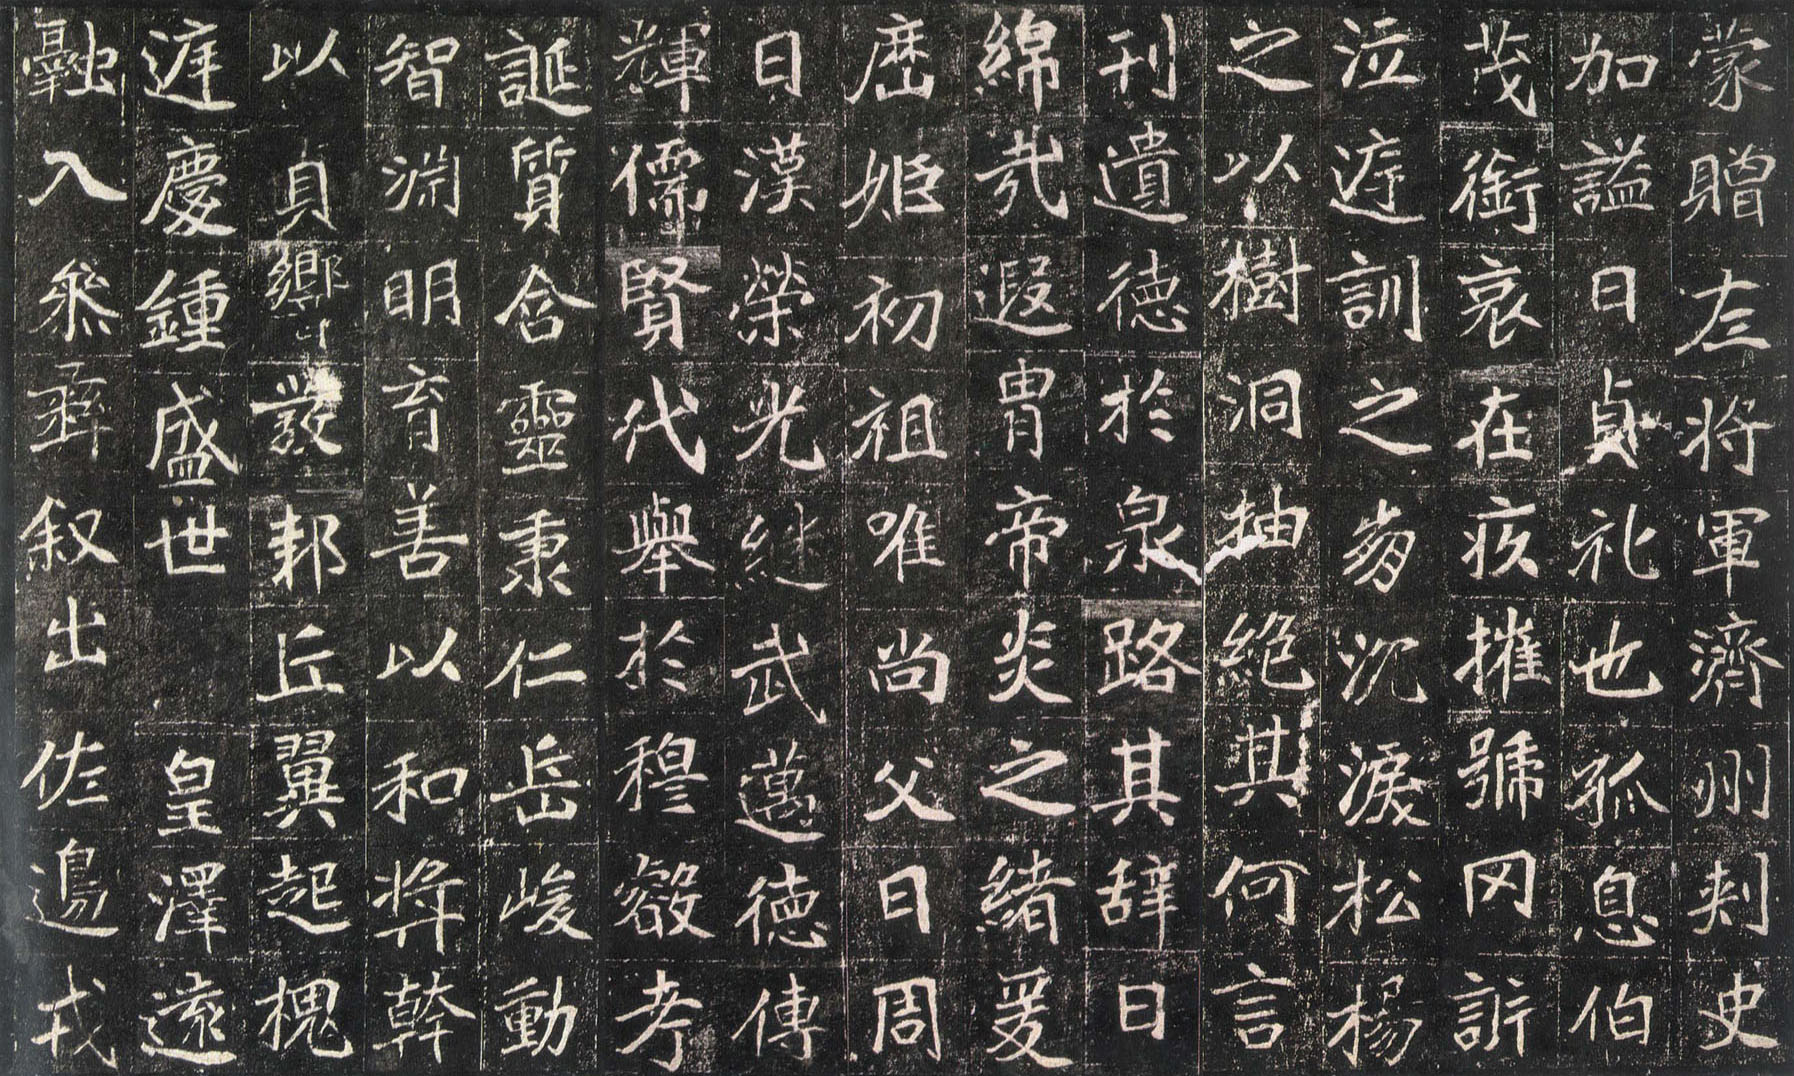 蒙贈左将軍濟州刾史
加謚曰貞礼也孤息伯
茂銜哀在疚摧號冈訴
泣遵訓之崩沉淚松楊
之以樹洞抽絶其何言
刊遺德於泉路其辞曰
綿㢤遐胄帝炎之緒爰
歴姬初祖唯尚父曰周
曰漢榮光継武邁德傳
輝儒賢代舉於穆叡考
誕質含靈秉仁岳峻動
智淵明育善以和奬幹
以貞響發邦丘翼起槐
遅慶鍾盛世 皇澤遠
融入叅彝叙出佐邊戎